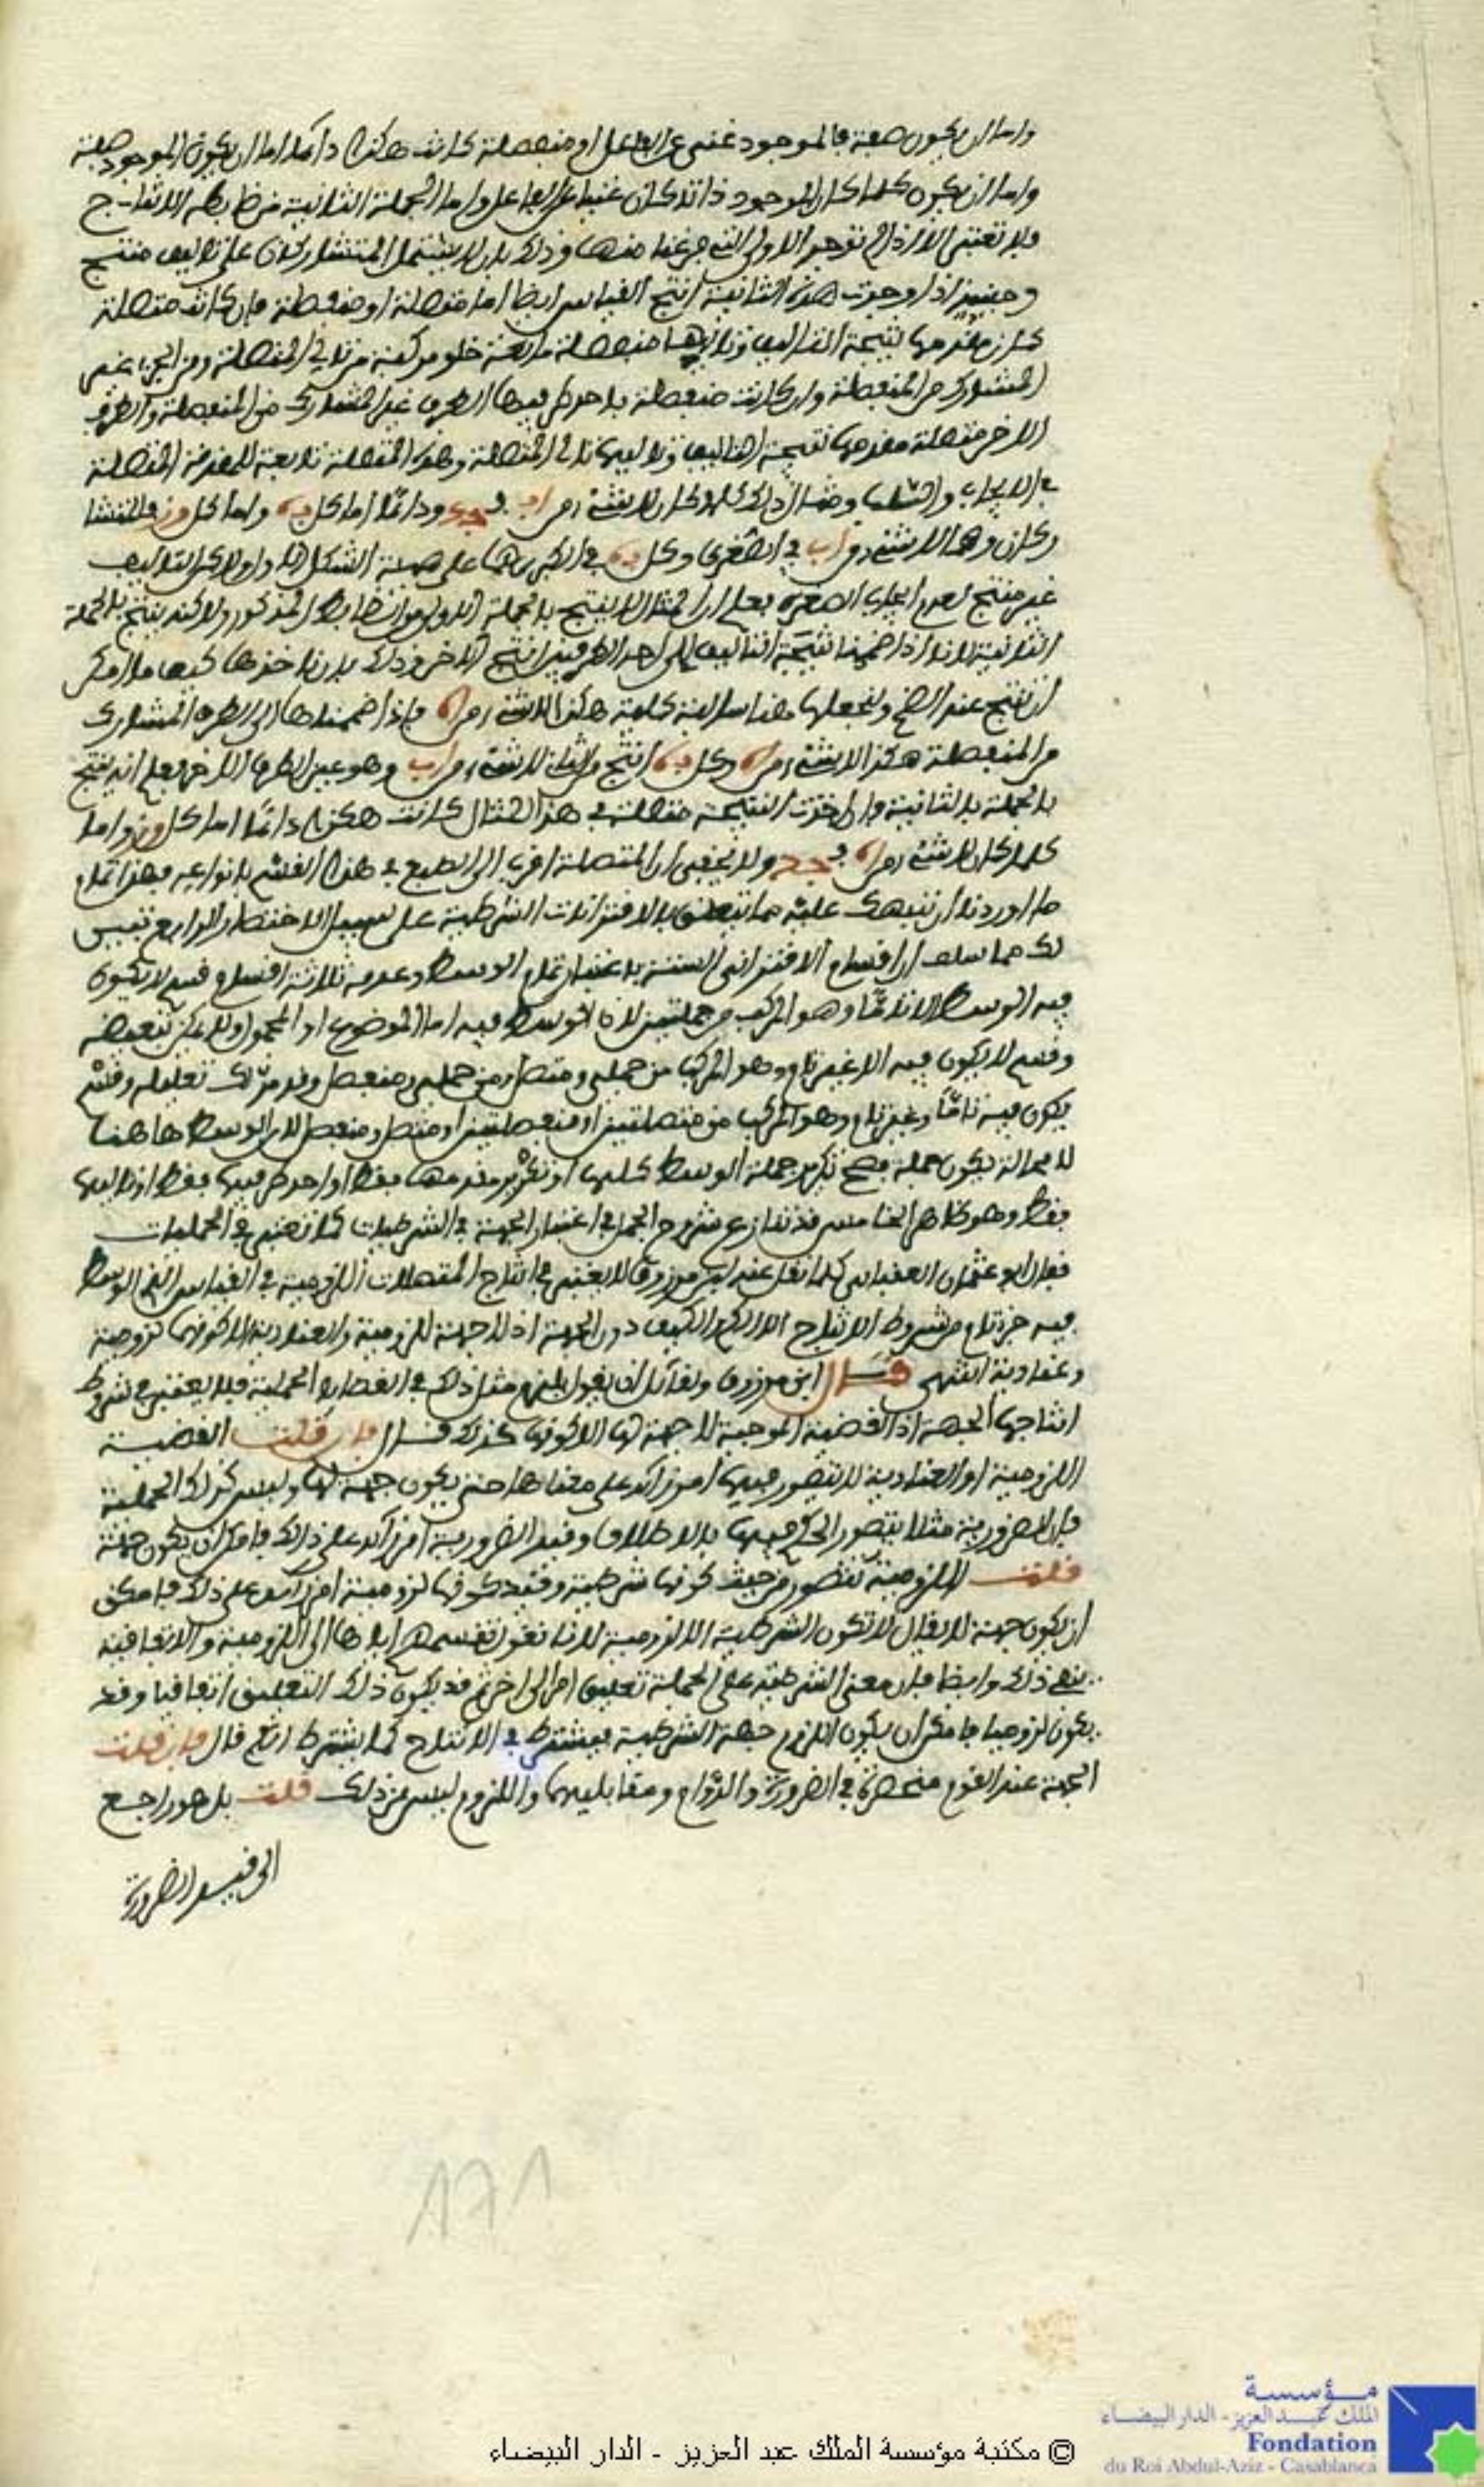 واما ان يكون صفة فالموجود غني عن الفاعل او منفصلة كانت هكذا دائما اما ان يكون الموجود صفة
واما ان يكون كلما كان الموجود ذاتا كان غنيا عن الفاعل واما الجملة الثانية من ضابطه الانتاج
فلا تعتبر الا اذا لم توجد الاولى التي فرغنا منها وذلك بان لا يشتمل المتشاركان على تاليف منتج
وحينئذ اذا وجدت هذه الثانية انتج القياس ايضا اما متصلة او منفصلة فان كانت متصلة
كان مقدمها نتيجة التاليف وتاليها منفصلة مانعة خلو مركبة من تالي المتصلة ومن الجزء غير
المتشارك من المنفصلة وان كانت منفصلة فاحد طرفيها الطرف غير المتشارك من المنفصلة والطرف
الاخر متصلة مقدمها نتيجة التاليف وتاليها تالي المتصلة وهذه المتصلة تابعة للمقدمة المتصلة
في الايجاب والسلب ومثال ذلك كلما كان لا شيء من اب فجد ودائما اما كل به واما كل وز فالمتشا
ركان وهما لا شيء من اب في الصغرى وكل به في الكبرى هما على هيئة الشكل الاول ولاكن التاليف
غير منتج لعدم ايجاب الصغرى فعلم ان المثال لا ينتج بالجملة الاولى من الضابط المذكور ولاكنه ينتج بالجملة
الثانية لانا اذا ضممنا نتيجة التاليف الى احد الطرفين انتج الاخر وذلك بان ناخذها كيف ما امكن
ان تنتج عند الضم ولنجعلها هنا سالبة كلية هكذا لا شيء من اه فاذا ضممناها الى الطرف المشارك
من المنفصلة هكذا لا شيء من اه وكل به انتج من الثاني لا شيء من اب وهو عين الطرف الاخر فعلم انه ينتج
بالجملة الثانية فان اخذت النتيجة منفصلة في هذا المثال كانت هكذا دائما اما كل وز واما
كلما كان لا شيء من اه فجد ولا يخفى ان المتصلة اقرب الى الطبع في هذا القسم بانواعه فهذا تمام
ما اوردنا ان ننبهك عليه مما يتعلق بالاقترانات الشرطية على سبيل الاختصار الرابع تبين
لك مما سلف ان اقسام الاقتراني الستة باعتبار تمام الوسط وعدمه ثلاثة اقسام قسم لا يكون
فيه الوسط الا تاما وهو المركب من حمليتين لان الوسط فيه اما الموضوع او المحمول ولا يمكن تبعيضه
وقسم لا يكون فيه الا غير تام وهو المركب من حملي ومتصل ومن حملي ومنفصل وقد مر لك تعليله وقسم
يكون فيه تاما وغير تام وهو المركب من متصلتين او منفصلتين او متصل ومنفصل لان الوسط هاهنا
لا محالة يكون جملة فصح تكرير جملة الوسط كلها او تكرير مقدمها فقط او احد طرفيها فقط او تاليها
فقط وهو ظاهر الخامس قد تنازع شروح الجمل في اعتبار الجهة في الشرطيات كما تعتبر في الحمليات
فقال ابو عثمان العقباني كما نقل عنه ابن مرزوق لا يعتبر في انتاج المتصلات اللزومية في القياس الذي الوسط
فيه جزء تام من شروط الانتاج الا الكم والكيف دون الجهة اذ لا جهة للزومية والعنادية الا كونها لزومية
وعنادية انتهى قال ابن مرزوق ولقائل ان يقول يلزم مثل ذلك في القضايا الحملية فلا يعتبر في شروط
انتاجها الجهة اذ القضية الموجبة لا جهة لها الا كونها كذلك قال فان قلت القضية
اللزومية او العنادية لا يتصور فيها امر زائد على معناها حتى يكون جهة لها وليس كذلك الحملية
فان الضرورية مثلا يتصور الحكم فيها بالاطلاق وقيد الضرورية امر زائد على ذلك فامكن ان يكون جهة
قلت اللزومية تتصور من حيث كونها شرطية وقيد كونها لزومية امر زائد على ذلك فامكن
ان يكون جهة لا يقال لا تكون الشرطية الا لزومية لانا نقول تقسيمهم اياها الى اللزومية والاتفاقية
ينفي ذلك وايضا فان معنى الشرطية على الجملة تعليق امر الى اخر ثم قد يكون ذلك التعليق اتفاقيا وقد
يكون لزوميا فامكن ان يكون اللزوم جهة الشرطية فيشترط في الانتاج كما يشترط ثم قال فان قلت
الجهة عند القوم منحصرة في الضرورة والدوام ومقابليهما واللزوم ليس من ذلك قلت بل هو راجع
الى قيد الضرورة
١٧١
© مكتبة مؤسسة الملك عبد العزيز - الدار البيضاء
مؤسسة
الملك عبد العزيز - الدار البيضاء
Fondation
du Roi Abdul-Aziz - Casablanca